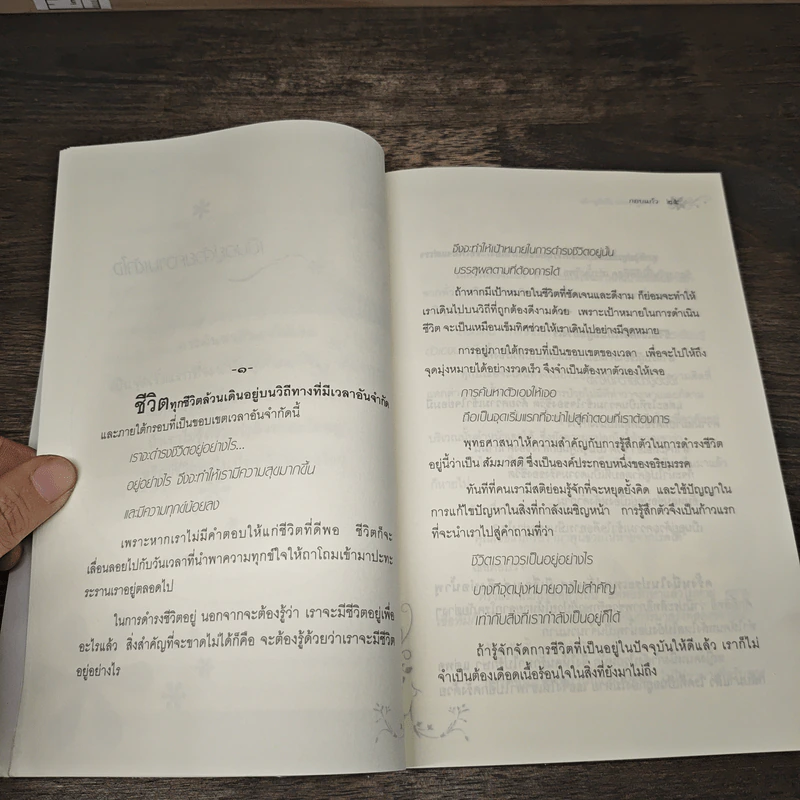 -๑-
ชีวิตทุกชีวิตล้วนเดินอยู่บนวิถีทางที่มีเวลาอันจำกัด
และภายใต้กรอบที่เป็นขอบเขตเวลาอันจำกัดนี้
เราจะดำรงชีวิตอยู่อย่างไร...
อยู่อย่างไร จึงจะทำให้เรามีความสุขมากขึ้น
และมีความทุกข์น้อยลง
เพราะหากเราไม่มีคำตอบให้แก่ชีวิตที่ดีพอ ชีวิตก็จะ
เลื่อนลอยไปกับวันเวลาที่นำพาความทุกข์ใจให้ถาโถมเข้ามาปะทะ
ระรานเราอยู่ตลอดไป
ในการดำรงชีวิตอยู่ นอกจากจะต้องรู้ว่า เราจะมีชีวิตอยู่เพื่อ
อะไรแล้ว สิ่งสำคัญที่จะขาดไม่ได้ก็คือ จะต้องรู้ด้วยว่าเราจะมีชีวิต
อยู่อย่างไร
จึงจะทำให้เป้าหมายในการดำรงชีวิตอยู่นั้น
บรรลุผลตามที่ต้องการได้
ถ้าหากมีเป้าหมายในชีวิตที่ชัดเจนและดีงาม ก็ย่อมจะทำให้
เราเดินไปบนวิถีที่ถูกต้องดีงามด้วย เพราะเป้าหมายในการดำเนิน
ชีวิต จะเป็นเหมือนเข็มทิศช่วยให้เราเดินไปอย่างมีจุดหมาย
การอยู่ภายใต้กรอบที่เป็นขอบเขตของเวลา เพื่อจะไปให้ถึง
จุดมุ่งหมายได้อย่างรวดเร็ว จึงจำเป็นต้องหาตัวเองให้เจอ
การค้นหาตัวเองให้เจอ
ถือเป็นจุดเริ่มแรกที่จะนำไปสู่คำตอนที่เราต้องการ
พุทธศาสนาให้ความสำคัญกับการรู้สึกตัวในการดำรงชีวิต
อยู่นี้ว่าเป็น สัมมาสติ ซึ่งเป็นองค์ประกอบหนึ่งของอริยมรรค
ทันทีที่คนเรามีสติย่อมรู้จักที่จะหยุดยั้งคิด และใช้ปัญญาใน
การแก้ไขปัญหาในสิ่งที่กำลังเผชิญหน้า การรู้สึกตัวจึงเป็นก้าวแรก
ที่จะนำเราไปสู่คำถามที่ว่า
ชีวิตเราควรเป็นอยู่อย่างไร
บางทีจุดมุ่งหมายอาจไม่สำคัญ
เท่ากับสิ่งที่เรากำลังเป็นอยู่ก็ได้
ถ้ารู้จักจัดการชีวิตที่เป็นอยู่ในปัจจุบันให้ดีแล้ว เราก็ไม่
จำเป็นต้องเดือดเนื้อร้อนใจในสิ่งที่ยังมาไม่ถึง